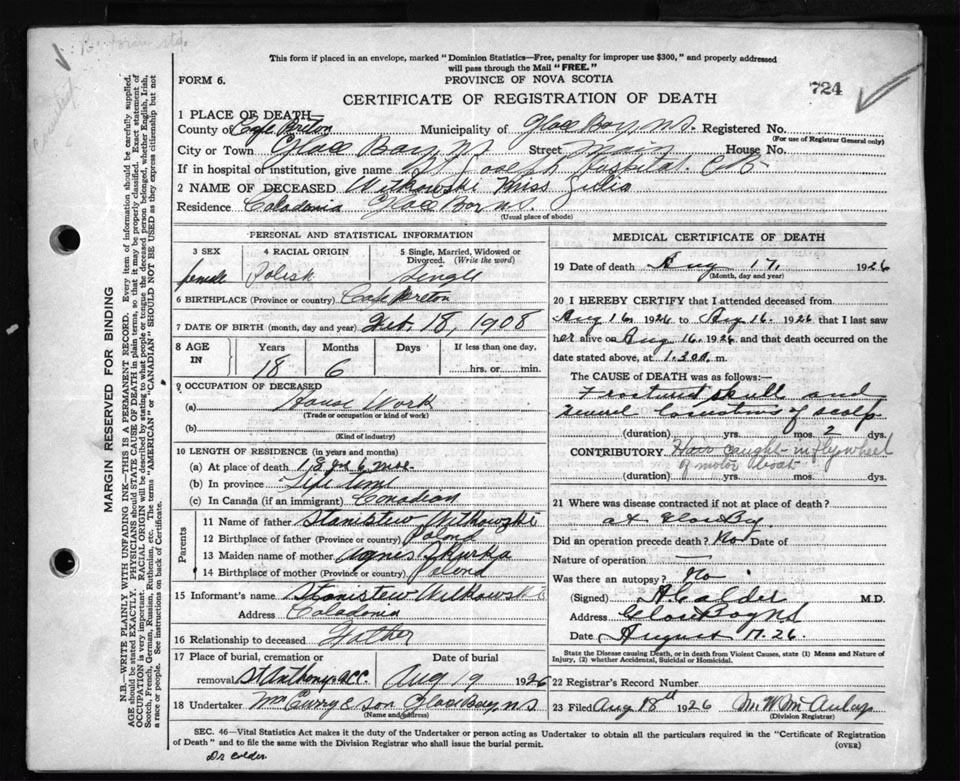 This form if placed in an envelope, marked "Dominion Statistics—Free, penalty for improper use $300," and properly addressed
will pass through the Mail "FREE."
FORM 6.
PROVINCE OF NOVA SCOTIA
724
CERTIFICATE OF REGISTRATION OF DEATH
1 PLACE OF DEATH
County of Cape Breton Municipality of Glace Bay N.S. Registered No.
(For use of Registrar General only)
City or Town Glace Bay NS Street Main House No.
If in hospital or institution, give name St Joseph Hospital. C B
2 NAME OF DECEASED Witkowski Miss Julia
Residence Caladonia Glace Bay N.S.
(Usual place of abode)
PERSONAL AND STATISTICAL INFORMATION
3 SEX 4 RACIAL ORIGIN 5 Single, Married, Widowed or
Divorced. (Write the word)
female Polish Single
6 BIRTHPLACE (Province or country) Cape Breton
7 DATE OF BIRTH (month, day and year) Feb. 18, 1908
8 AGE IN Years Months Days If less than one day,
18 6 hrs. or min.
9 OCCUPATION OF DECEASED
(a) House Work
(Trade or occupation or kind of work)
(b)
(Kind of industry)
10 LENGTH OF RESIDENCE (in years and months)
(a) At place of death 18 yrs 6 mos
(b) In province Life time
(c) In Canada (if an immigrant) Canadian
Parents
11 Name of father Stanistew Witkowski
12 Birthplace of father (Province or country) Poland
13 Maiden name of mother Agnes
14 Birthplace of mother (Province or country) Poland
15 Informant's name Stanistew Witkowski
Address Caladonia
16 Relationship to deceased Father
17 Place of burial, cremation or Date of burial
removal St Anthonys R.C.C. Aug 19 1926
18 Undertaker & Son Glace Bay, N.S
(Name and address)
MEDICAL CERTIFICATE OF DEATH
19 Date of death Aug 17, 1926
(Month, day and year)
20 I HEREBY CERTIFY that I attended deceased from
Aug 16, 1926 to Aug 16. 1926 that I last saw
her alive on Aug 16. 1926 and that death occurred on the
date stated above, at 1.30 a. m.
The CAUSE of DEATH was as follows:—
Fractured skull and
of scalp
(duration) yrs. mos. 2 dys.
CONTRIBUTORY Hair caught in flywheel
of motor boat
(duration) yrs. mos. dys.
21 Where was disease contracted if not at place of death?
at Glace Bay
Did an operation precede death? No Date of
Nature of operation —
Was there an autopsy? No
(Signed) A Calder M.D.
Address Glace Bay NS
Date August 17. 26.
State the Disease causing Death, or in death from Violent Causes, state (1) Means and Nature of
Injury, (2) whether Accidental, Suicidal or Homicidal.
22 Registrar's Record Number
23 Filed Aug 18th 1926
(Division Registrar)
SEC. 46—Vital Statistics Act makes it the duty of the Undertaker or person acting as Undertaker to obtain all the particulars required in the "Certificate of Registration
of Death" and to file the same with the Division Registrar who shall issue the burial permit.
(OVER)
Dr Calder
MARGIN RESERVED FOR BINDING
N.B.—WRITE PLAINLY WITH UNFADING INK—THIS IS A PERMANENT RECORD. Every item of information should be carefully supplied.
AGE should be stated EXACTLY. PHYSICIANS should STATE CAUSE OF DEATH in plain terms, so that it may be properly classified. Exact statement of
OCCUPATION is very important. RACIAL ORIGIN will be described by stating to what people or tongue the deceased person belonged, whether English, Irish,
Scotch, French, German, Russian, Ruthenian, etc. The terms "AMERICAN" or "CANADIAN" SHOULD NOT BE USED as they express citizenship but not
a race or people. See instructions on back of Certificate.